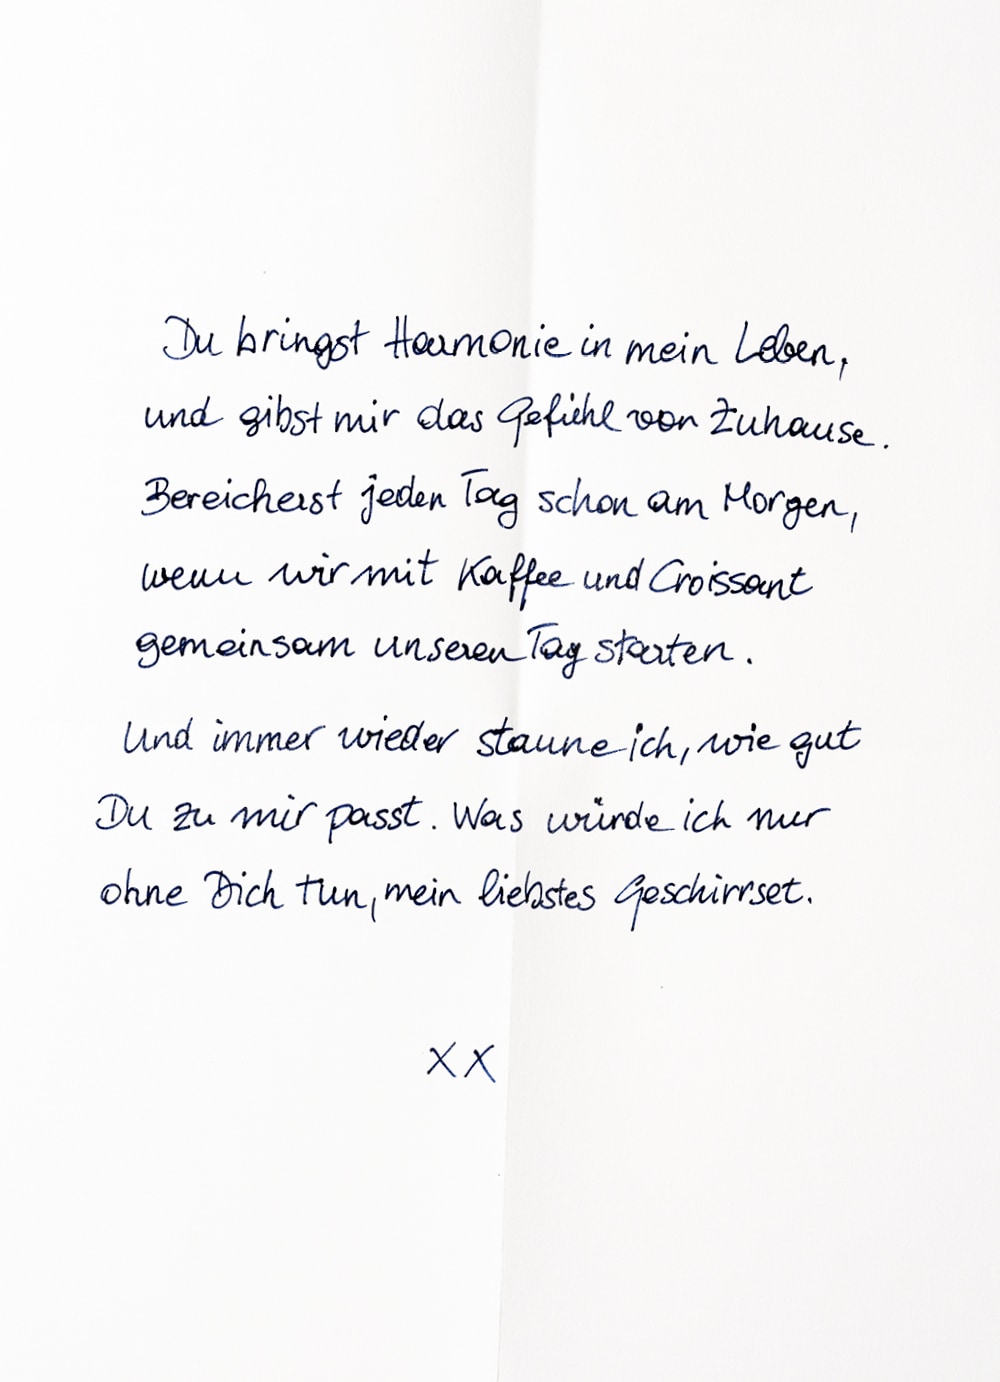 Du bringst Harmonie in mein Leben,
und gibst mir das Gefühl von Zuhause.
Bereicherst jeden Tag schon am Morgen,
wenn wir mit Kaffee und Croissant
gemeinsam unseren Tag starten.
Und immer wieder staune ich, wie gut
Du zu mir passt. Was würde ich nur
ohne Dich tun, mein liebstes Geschirrset.
XX